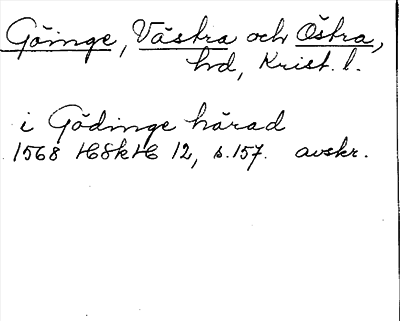 Göinge, Västra och Östra,
hd, Krist. l.
i Gödinge härad
1568 HSkH 12, s. 157. avskr.